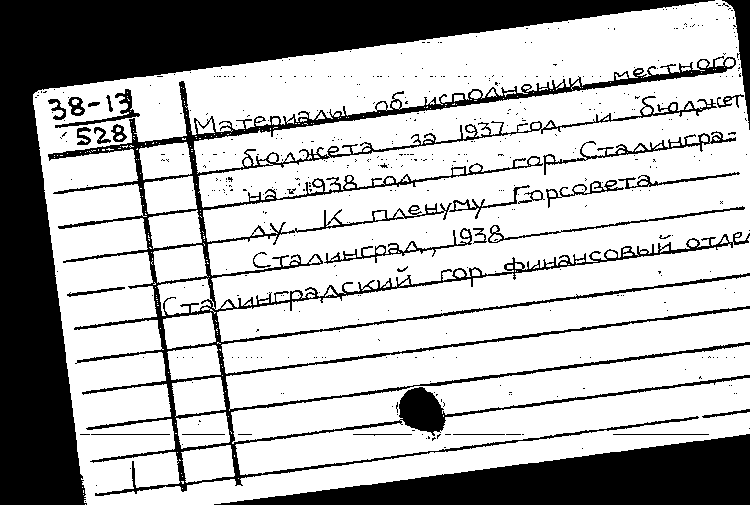 38-13
528
Материалы об исполнении местного
бюджета за 1937 год и бюджет
на 1938 год по гор Сталингра-
ду. К пленуму Горсовета.
Сталинград, 1938
Сталинградский гор финансовый отдел